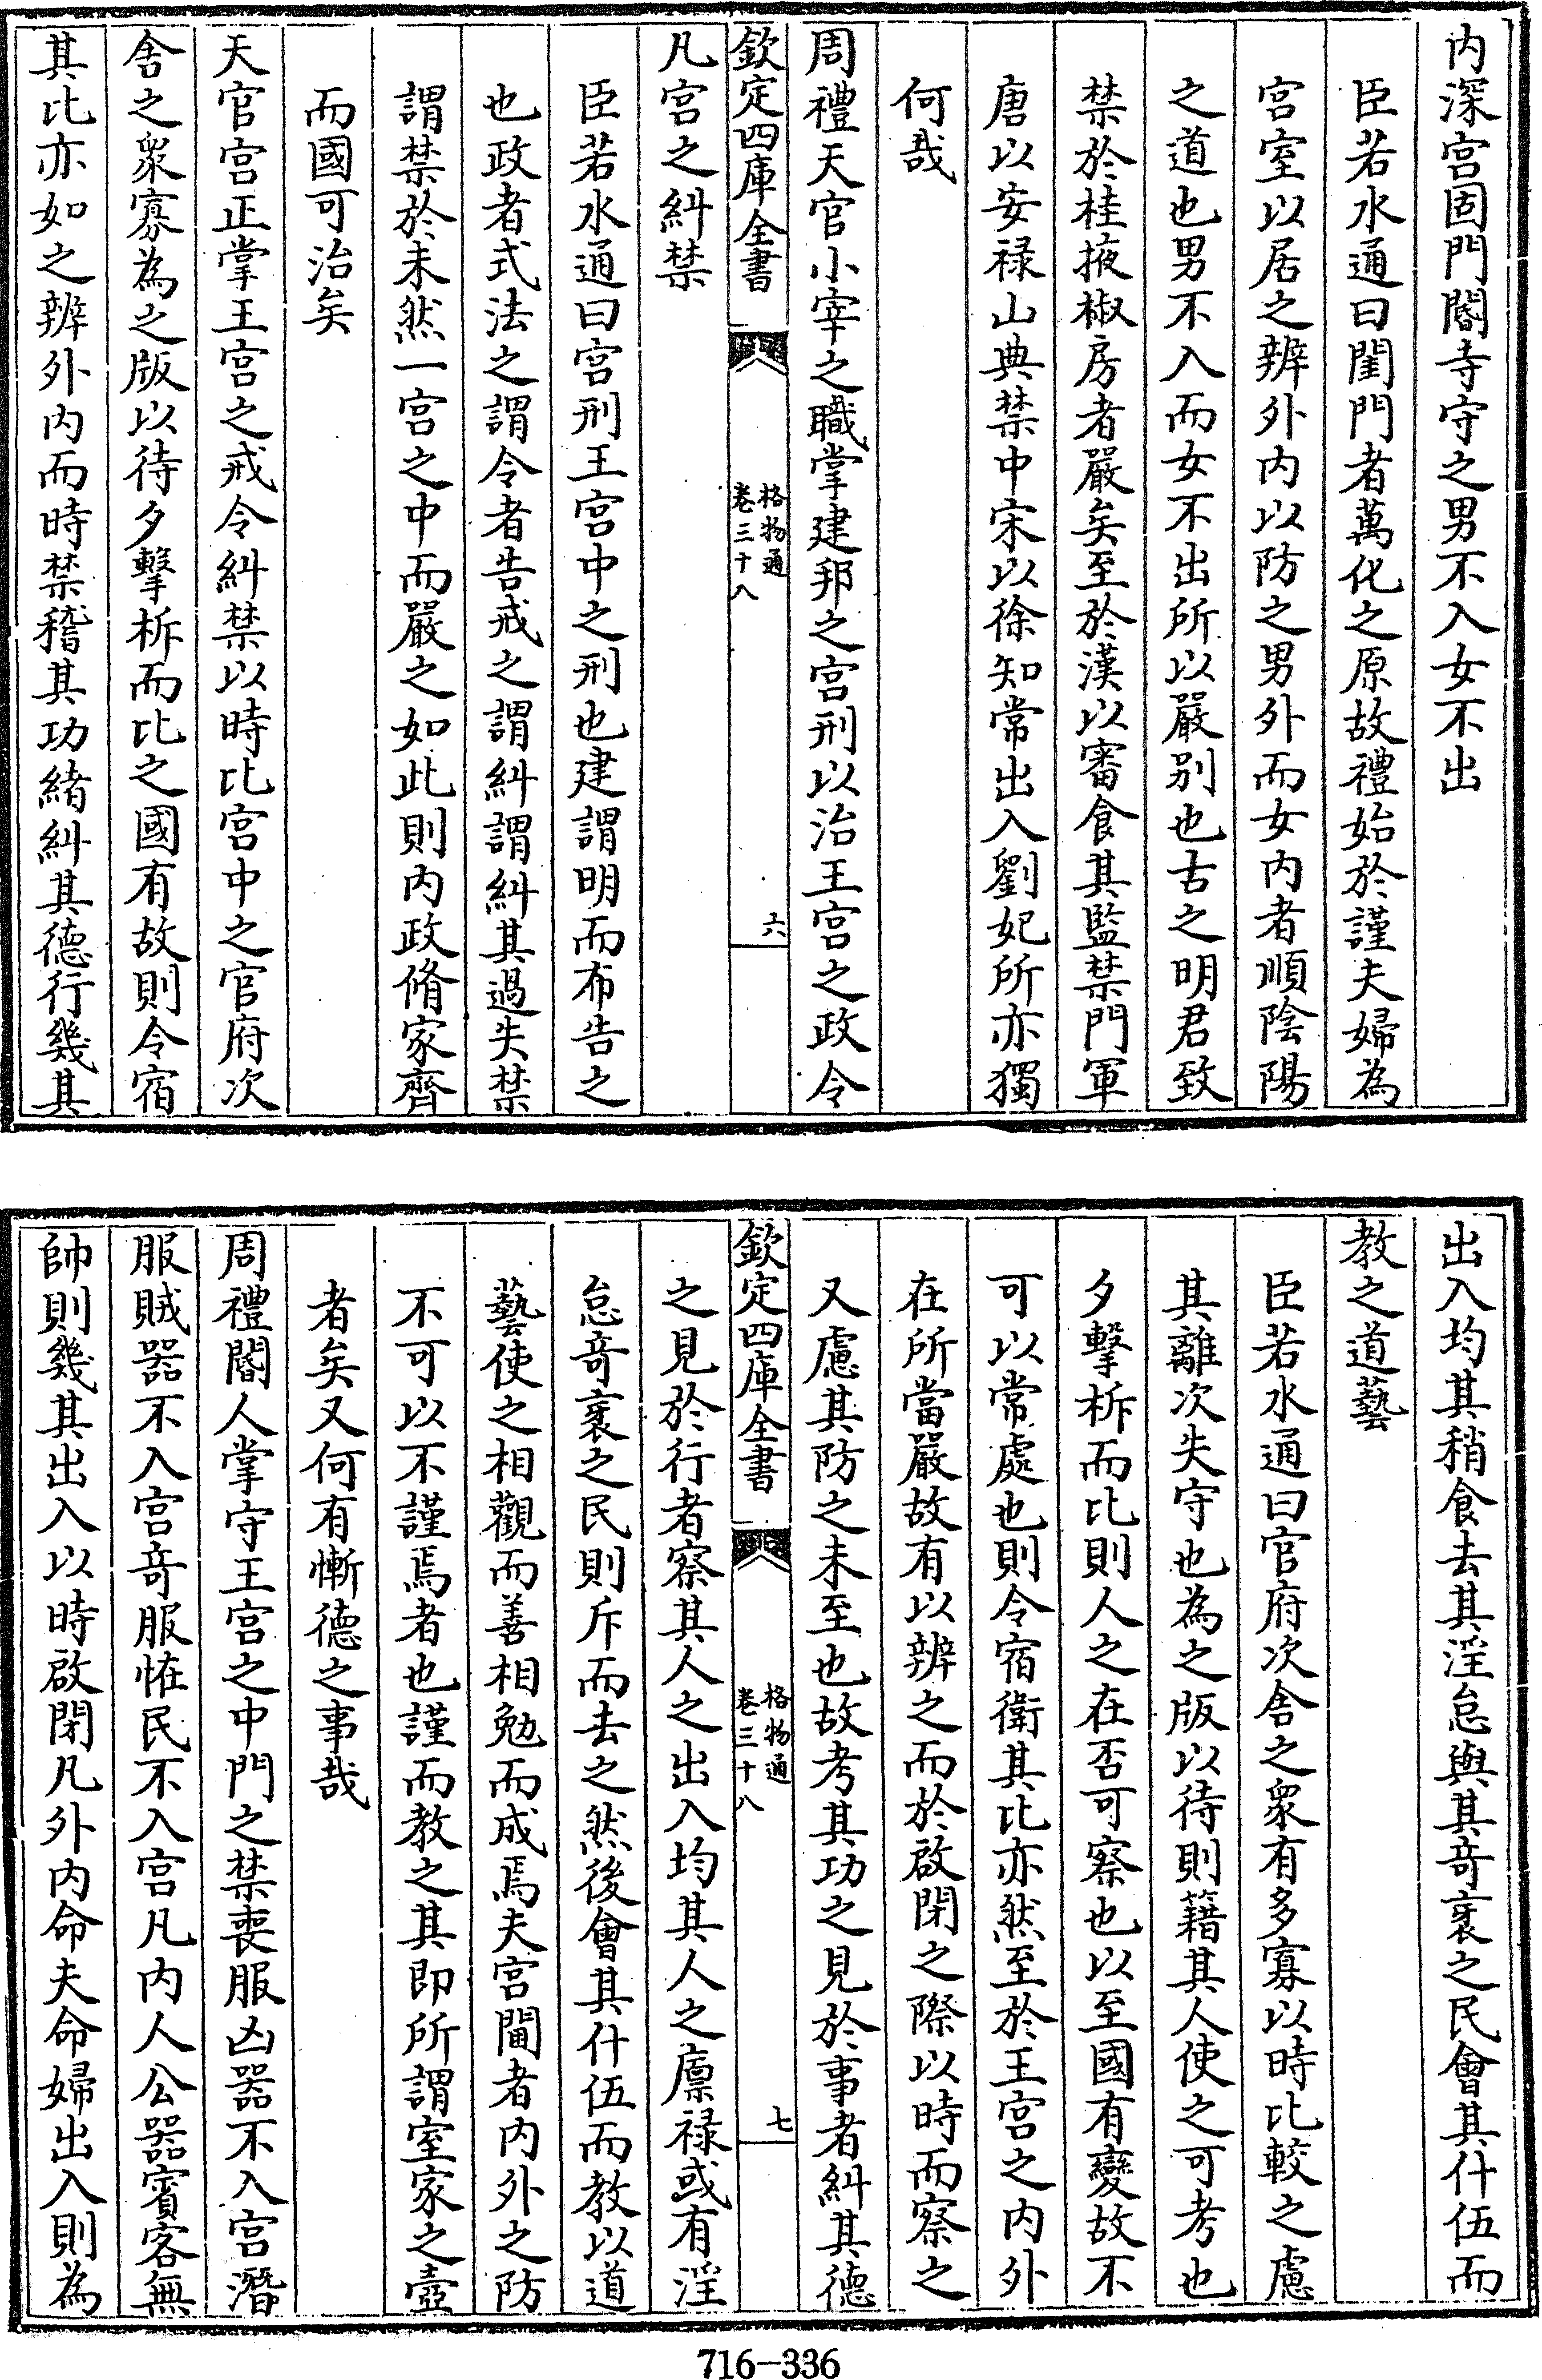 内深宫固門閽寺守之男不入女不出
臣若水通曰閨門者萬化之原故禮始於謹夫婦為
宫室以居之辨外内以防之男外而女内者順陰陽
之道也男不入而女不出所以嚴别也古之明君致
禁於桂掖椒房者嚴矣至於漢以審食其監禁門軍
唐以安禄山典禁中宋以徐知常出入劉妃所亦獨
何哉
周禮天官小宰之職掌建邦之宫刑以治王宫之政令
欽定四庫全書
格物通
卷三十八
六
凡宫之糾禁
臣若水通曰宫刑王宫中之刑也建謂明而布告之
也政者式法之謂令者告戒之謂糾謂糾其過失禁
謂禁於未然一宫之中而嚴之如此則内政脩家齊
而國可治矣
天官宫正掌王宫之戒令糾禁以時比宫中之官府次
舍之衆寡為之版以待夕擊柝而比之國有故則令宿
其比亦如之辨外内而時禁稽其功緒糾其德行幾其
出入均其稍食去其淫怠與其竒衺之民會其什伍而
教之道藝
臣若水通曰官府次舍之衆有多寡以時比較之慮
其離次失守也為之版以待則籍其人使之可考也
夕擊柝而比則人之在否可察也以至國有變故不
可以常處也則令宿衛其比亦然至於王宫之内外
在所當嚴故有以辨之而於啟閉之際以時而察之
又慮其防之未至也故考其功之見於事者糾其德
欽定四庫全書
格物通
卷三十八
七
之見於行者察其人之出入均其人之廪禄或有淫
怠竒衺之民則斥而去之然後會其什伍而教以道
藝使之相觀而善相勉而成焉夫宫閫者内外之防
不可以不謹焉者也謹而教之其即所謂室家之壺
者矣又何有慚德之事哉
周禮閽人掌守王宫之中門之禁喪服凶器不入宫潛
服賊器不入宫竒服恠民不入宫凡内人公器賓客無
帥則幾其出入以時啟閉凡外内命夫命婦出入則為
716-336